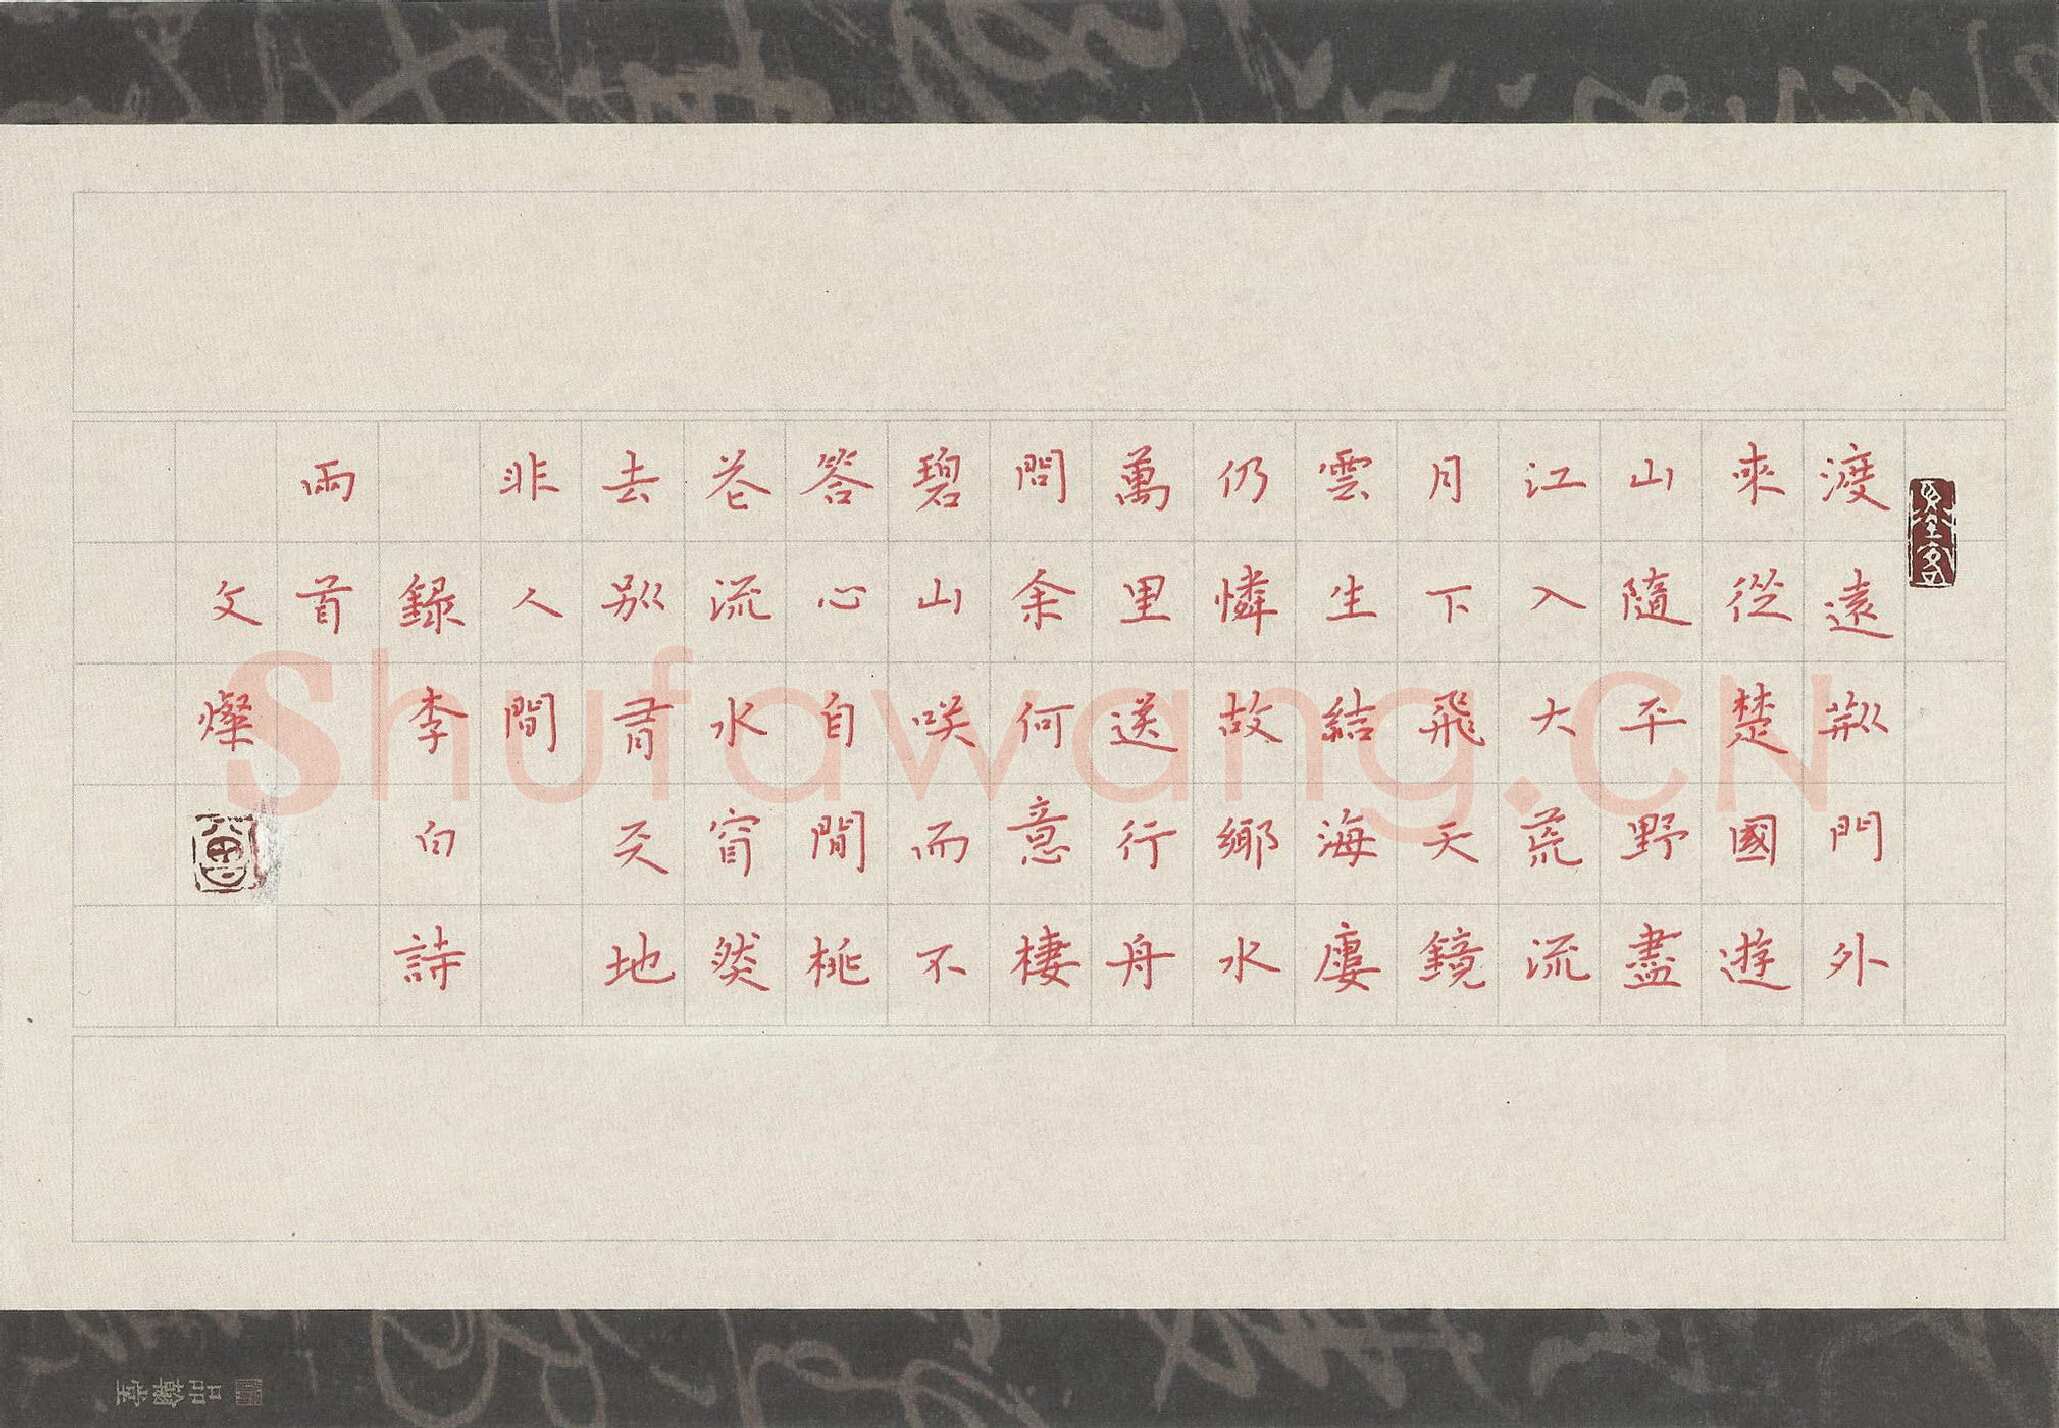 墨客
渡遠荊門外
來從楚國遊
山隨平野盡
江入大荒流
月下飛天鏡
雲生結海廔
仍憐故鄉水
萬里送行舟
問余何意棲
碧山咲而不
答心自閒桃
花流水窅然
去别有天地
非人間
録李白詩
兩首
文燦
Shufawang.CN
品翰堂